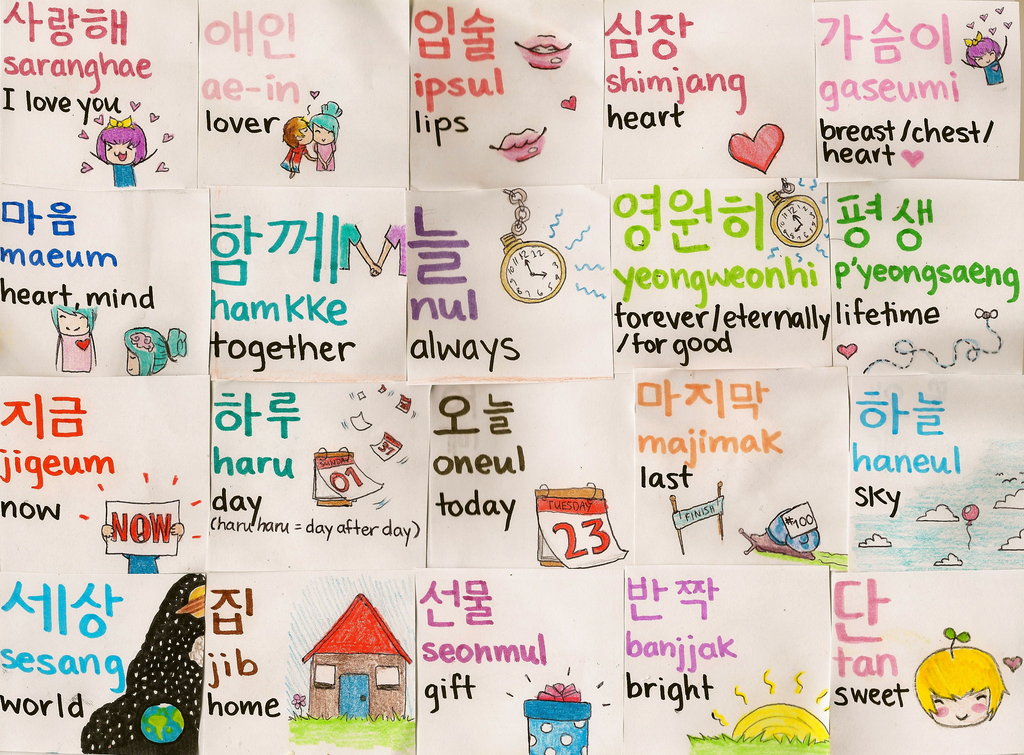 사랑해
saranghae
I love you
애인
ae-in
lover
입술
ipsul
lips
심장
shimjang
heart
가슴이
gaseumi
breast/chest/
heart
마음
maeum
heart, mind
함께
hamkke
together
늘
nul
always
영원히
yeongweonhi
forever/eternally
/for good
평생
p'yeongsaeng
lifetime
지금
jigeum
now
NOW
하루
haru
day
(haru haru = day after day)
SUNDAY
01
31
오늘
oneul
today
TUESDAY
23
마지막
majimak
last
FINISH
#100
하늘
haneul
sky
세상
sesang
world
집
jib
home
선물
seonmul
gift
반짝
banjjak
bright
단
tan
sweet